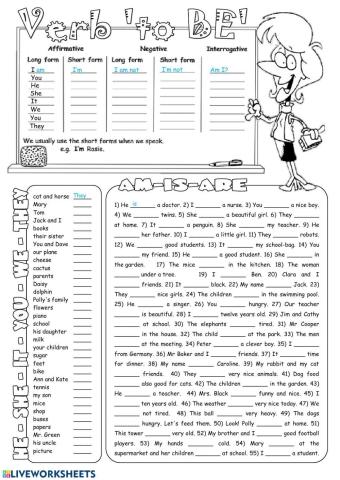 Verb 'to BE'
Affirmative Negative Interrogative
Long form Short form Long form Short form
I am I'm I am not I'm not Am I?
You
He
She
It
We
You
They
We usually use the short forms when we speak.
e.g. I'm Rosie.
HE-SHE-IT-YOU-WE-THEY
cat and horse They
Mary
Tom
Jack and I
books
their sister
You and Dave
our plane
cheese
cactus
parents
Daisy
dolphin
Polly's family
flowers
piano
school
his daughter
milk
your children
sugar
feet
bike
Ann and Kate
tennis
my son
mice
shop
buses
papers
Mr. Green
his uncle
picture
AM-IS-ARE
1) He is a doctor. 2) I ______ a nurse. 3) You ______ a nice boy.
4) We ______ twins. 5) She ______ a beautiful girl. 6) They ______
at home. 7) It ______ a penguin. 8) She ______ my teacher. 9) He
______ her father. 10) I ______ a little girl. 11) They ______ robots.
12) We ______ good students. 13) It ______ my school-bag. 14) You
______ my friend. 15) He ______ a good student. 16) She ______ in
the garden. 17) The nice ______ in the kitchen. 18) The woman
______ under a tree. 19) I ______ Ben. 20) Clara and I
______ friends. 21) It ______ black. 22) My name ______ Jack. 23)
They ______ nice girls. 24) The children ______ in the swimming pool.
25) He ______ a singer. 26) You ______ hungry. 27) Our teacher
______ is beautiful. 28) I ______ twelve years old. 29) Jim and Cathy
______ at school. 30) The elephants ______ tired. 31) Mr Cooper
______ in the house. 32) The child ______ at the park. 33) The men
______ at the meeting. 34) Peter ______ a clever boy. 35) I ______
from Germany. 36) Mr Baker and I ______ friends. 37) It ______ time
for dinner. 38) My name ______ Caroline. 39) My rabbit and my cat
______ friends. 40) They ______ very nice animals. 41) Dog food
______ also good for cats. 42) The children ______ in the garden. 43)
He ______ a teacher. 44) Mrs. Black ______ funny and nice. 45) I
______ ten years old. 46) The weather ______ very nice today. 47) We
______ not tired. 48) This ball ______ very heavy. 49) The dogs
______ hungry. Let's feed them. 50) Look! Polly ______ at home. 51)
This tower ______ very old. 52) My brother and I ______ good football
players. 53) My hands ______ cold. 54) Mary ______ at the
supermarket and her children ______ at school. 55) I ______ a student.
LIVEWORKSHEETS